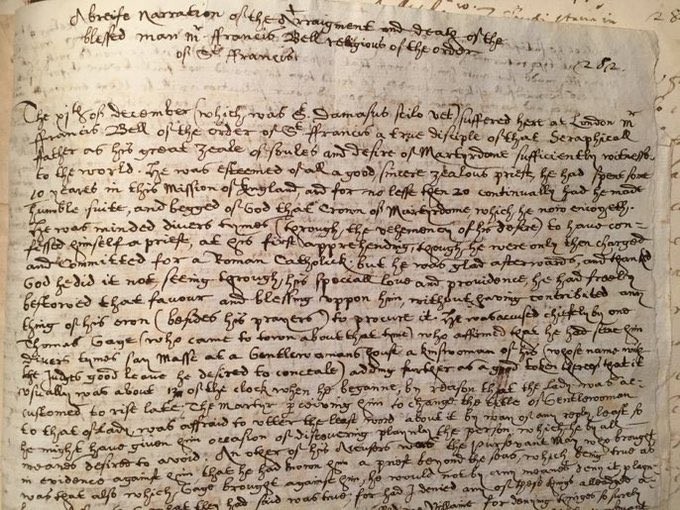 A breife Narration of the Arraigment and death of the
blessed man mr ffrancis Bell religious of the order
of St ffrancis.
282.
The xjth of december (which was S. Damasus stilo vet) suffered here at London mr
ffrancis Bell of the order of St ffrancis a true disciple of that Seraphicall
father as his great zeale of soules and desire of Martyrdome sufficiently witness
to the world. He was esteemed of al a good, sincere zealous priest, he had spent some
10 yeares in this Mission of England and for no lesse then 20 continually had he made
humble suite, and begged of God that Crown of Martyrdome which he now enioyeth.
He was minded divers tymes (through the vehemency of his desire) to have con-
fessed himself a priest, at his first apprehending, though he were only then charged
and Committed for a Roman Catholick, but he was glad afterwards, and thanked
God he did it not, seeing through his speciall love and providence, he had freely
bestowed that favour and blessing uppon him, without having contributed any
thing of his own (besides his prayers) to procure it. He was accused chiefly by one
Thomas Gage (who came to town about that time) who affirmed that he had seen him
divers tymes say Masse at a Gentlewomans house a kinswoman of his (whose name with
the Judges good leave he desired to conceale) adding further as a good token thereof that it
usually was about 12 of the clock when he beganne, by reason that the Lady was ac-
customed to rise late. The Martyr perceiving him to change the title of Gentlewoman
to that of Lady was affraid to utter the least word about it by way of any reply least so
he might have given him occasion of discovering plainly the person which he by all
means desired to avoid. An other of his Accusers was the pursevant May who brought
in evidence against him that he had known him a priest beyond the seas, which being true as
was that also which Gage brought against him, he would not by any means deny it
that they had said was true, for had I denied any of these things
for denying thinges so surely